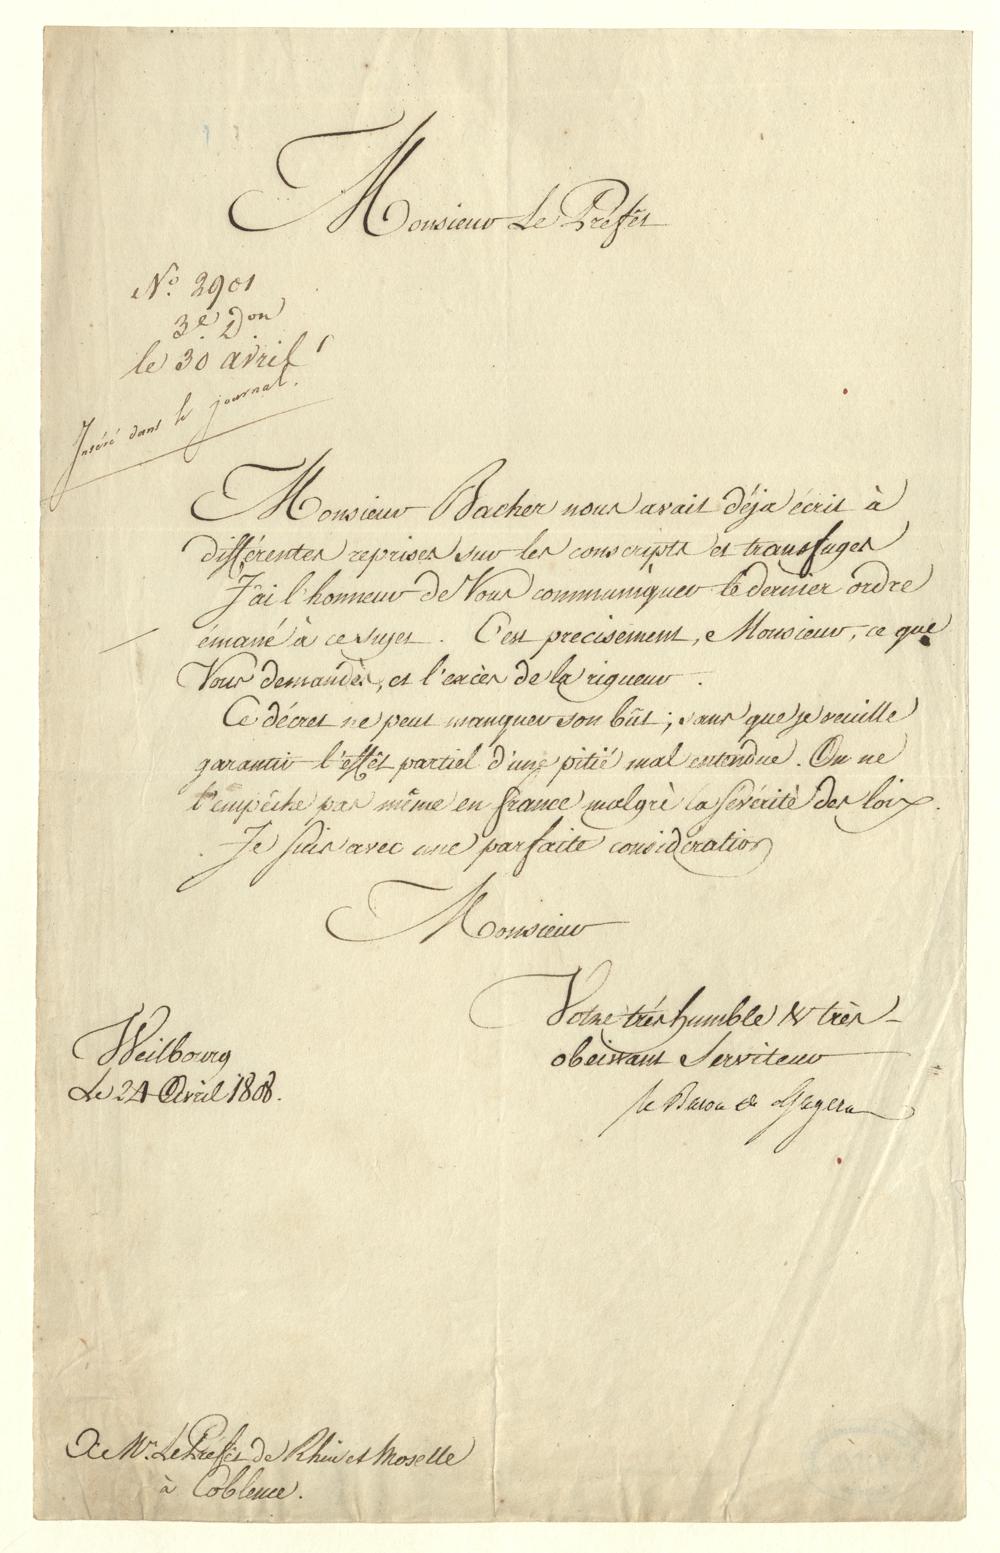 Monsieur Le Préfêt
No. 2901
3e Don
le 30 avril
Inséré dans le journal.
Monsieur Bacher nous avait déja écrit à
différentes reprises sur les conscripts et transfuges
J'ai l'honneur de Vous communiquer le dernier ordre
émané à ce sujet. C'est precisement, Monsieur, ce que
Vous demandès, et l'excès de la rigueur.
Ce décret ne peut manquer son bût; sans que je veuille
garantir l'effêt partiel d'une pitié mal entendue. On ne
l'empêche pas même en france malgrè la sevérité des loix.
Je suis avec une parfaite considération
Monsieur
Votre très humble & très-
obeissant Serviteur
le Baron de Gagern
Weilbourg
Le 24 Avril 1808.
A Mr. Le Préfêt de Rhin et Moselle
à Coblence.